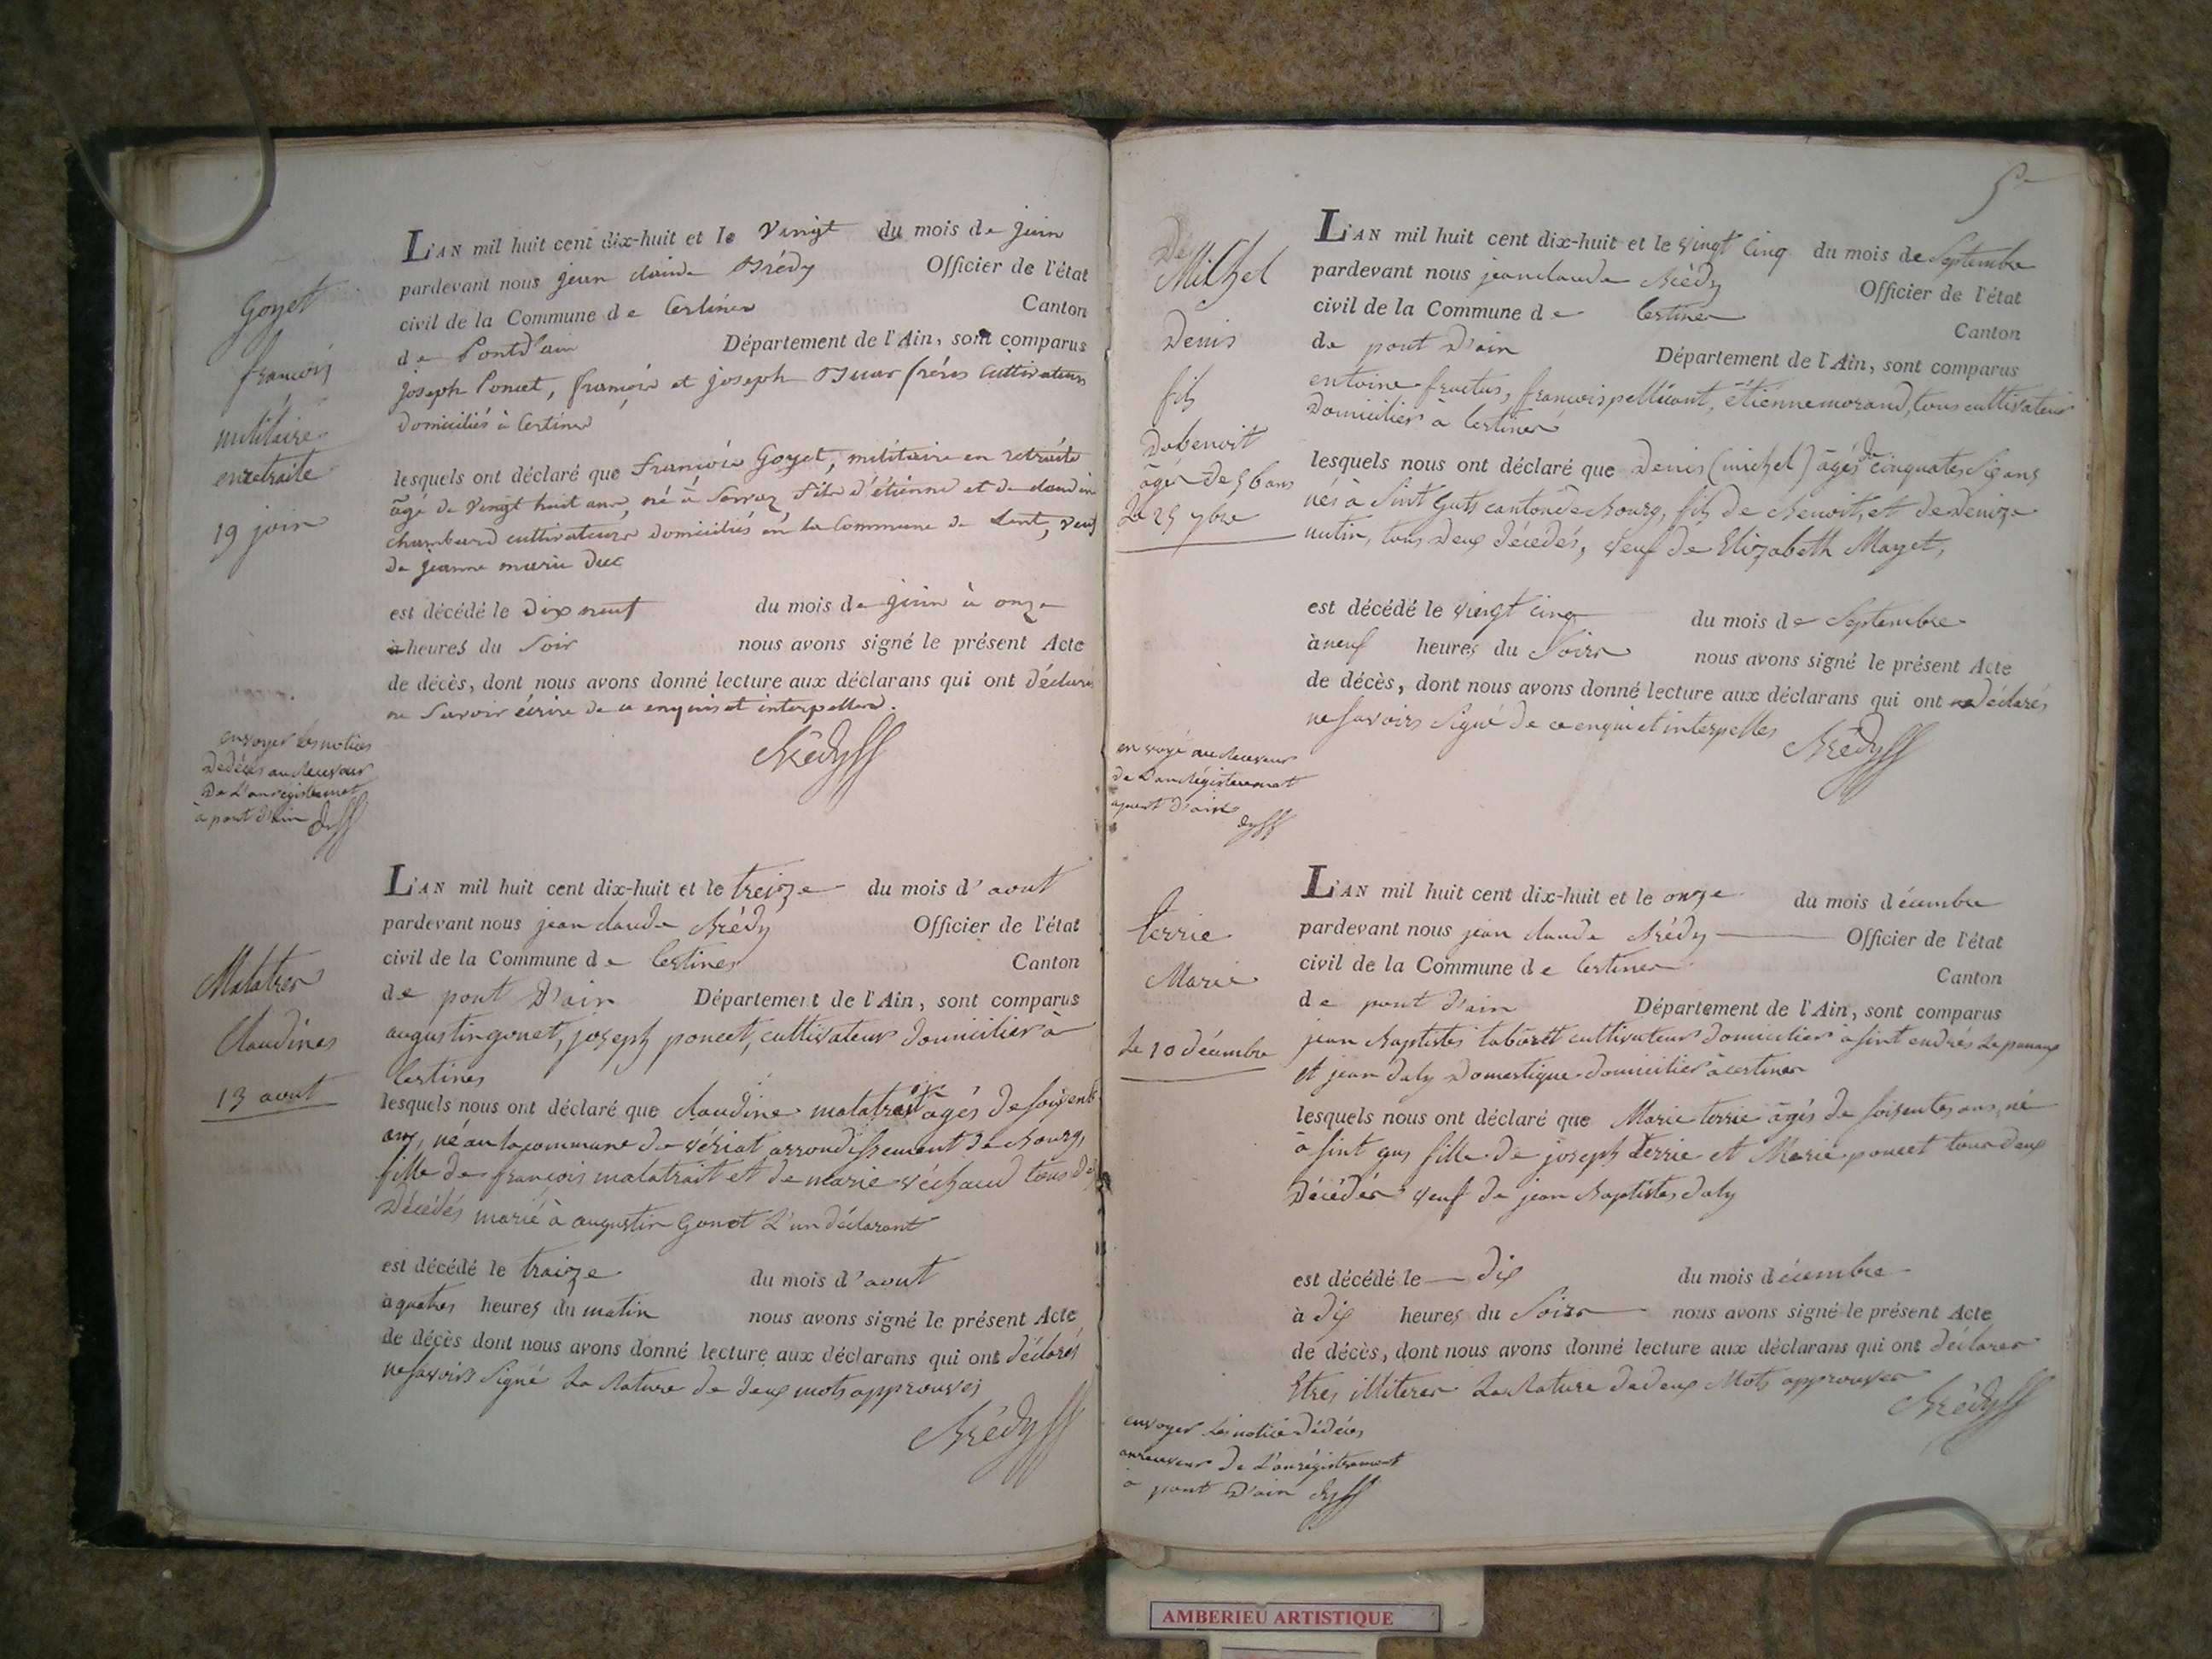 Goyet
françois
militaire
enretraite
19 join
L'AN mil huit cent dix-huit et le vingt du mois de juin
pardevant nous jean claude Brédy Officier de l'état
civil de la Commune de Certines Canton
de Pontd'ain Département de l'Ain, sont comparus
joseph Poncet, françois et joseph frères cultivateurs
domiciliés à Certines
lesquels ont déclaré que françois Goyet, militaire en retraite
âgé de vingt huit ans, né à Servaz, fils d'étienne et de claudine
chambard cultivateurs domiciliés en la Commune de Lent, veuf
de jeanne marie Duc
est décédé le dix neuf du mois de juin à onze
heures du Soir nous avons signé le présent Acte
de décès, dont nous avons donné lecture aux déclarans qui ont déclaré
ne savoir écrire de ce enquis et interpellés.
Brédy
envoyer les notices
dedécès au Receveur
De L'anregistremet
à pont d'ain
Malatrer
Claudines
13 aout
L'AN mil huit cent dix-huit et le treize du mois d'aout
pardevant nous jean claude Brédy Officier de l'état
civil de la Commune de Certines Canton
de pont D'ain Département de l'Ain, sont comparus
augustin gonet, joseph poncet, cultivateur domicilier à
Certines
lesquels nous ont déclaré que claudine malatrait âgés de soixente
ans, né au la commune de vériat arrondissement de Bourg,
fille de françois malatrait et de marie véchaud tous de
Décédés marié à augustin Gonet L'un déclarant
est décédé le traize du mois d'aout
à quatres heures du matin nous avons signé le présent Acte
de décès dont nous avons donné lecture aux déclarans qui ont déclarés
ne savoirs Signé La Rature de deux mots approuvés
Brédy
5
Michel
Denis
fils
Debenoit
âgés De 56 ans
Le 25 7bre
L'AN mil huit cent dix-huit et le vingt cinq du mois de Septembre
pardevant nous jeanclaude Brédy Officier de l'état
civil de la Commune de Certines Canton
de pont D'ain Département de l'Ain, sont comparus
entoine fructus, françois pellicant, étienne morand, tous cultivateur
Domicilier à Certines
lesquels nous ont déclaré que Denis (michel) âgés de cinquates Six ans
nés à Sint Guts canton de Bourg, fils de Benoit, et de Denize
mutin, tous Deux décédés, veuf de Elizabeth Mayet,
est décédé le vingt cinq du mois de Septembre
à neuf heures du Soirs nous avons signé le présent Acte
de décès, dont nous avons donné lecture aux déclarans qui ont déclarés
ne savoirs Signé de ce enqui et interpelles
Brédy
envoyé au Receveur
de L'anRégistremet
apont D'ain
terrie
Marie
Le 10 décembre
L'AN mil huit cent dix-huit et le onze du mois décembre
pardevant nous jean claude Brédy Officier de l'état
civil de la Commune de Certines Canton
de pont d'ain Département de l'Ain, sont comparus
jean Baptistes taboret cultivateur domicilier à sint endrés Lepanoux
et jean daly Domestique domicilier à certines
lesquels nous ont déclaré que Marie terrie âgés de soisentes ans, né
à sint guy fille de joseph terrie et Marie poncet tous deux
Décédés veuf de jean Baptistes daly
est décédé le dix du mois décembre
à dix heures du Soirs nous avons signé le présent Acte
de décès, dont nous avons donné lecture aux déclarans qui ont déclarer
Etres illiterer La Rature de deux Mots approuver
Brédy
envoyer les notice dédécès
aureceveur de L'anrégistrement
à pont D'ain
AMBERIEU ARTISTIQUE